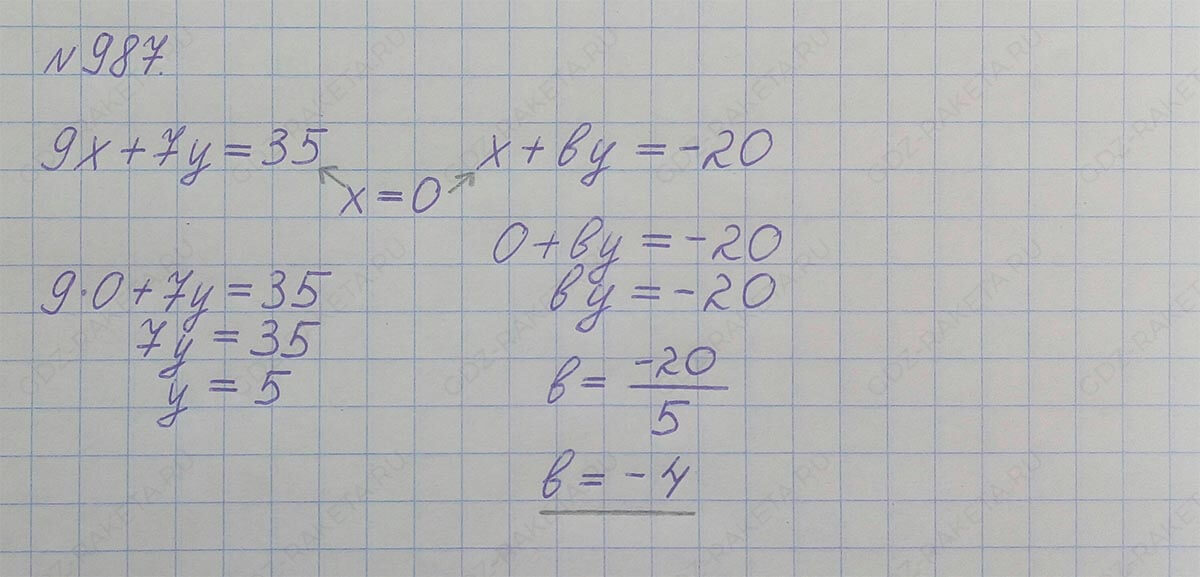 №987.
9x+7y=35
x+by=-20
x=0
9·0+7y=35
7y=35
y=5
0+by=-20
by=-20
b=-20/5
b=-4
GDZ-RAKETA.RU